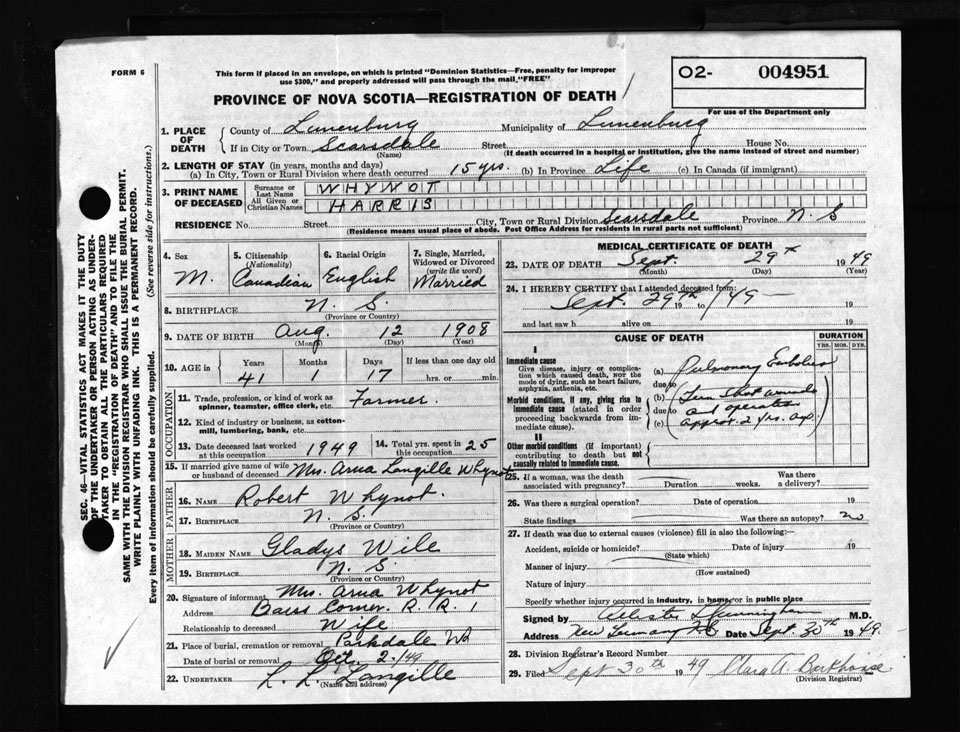 FORM 6
This form if placed in an envelope, on which is printed "Dominion Statistics—Free, penalty for improper
use $300," and properly addressed will pass through the mail "FREE"
O2- 004951
For use of the Department only
PROVINCE OF NOVA SCOTIA—REGISTRATION OF DEATH
1. PLACE OF DEATH
County of Lunenburg Municipality of Lunenburg
If in City or Town Scarsdale Street House No.
(Name) (If death occurred in a hospital or institution, give the name instead of street and number)
2. LENGTH OF STAY (in years, months and days)
(a) In City, Town or Rural Division where death occurred 15 yrs. (b) In Province Life (c) In Canada (if immigrant)
3. PRINT NAME OF DECEASED
Surname or Last Name WHYNOT
All Given or Christian Names HARRIS
RESIDENCE No. Street City, Town or Rural Division Scarsdale Province N.S
(Residence means usual place of abode. Post Office Address for residents in rural parts not sufficient)
4. Sex M.
5. Citizenship (Nationality) Canadian
6. Racial Origin English
7. Single, Married, Widowed or Divorced (write the word) Married
8. BIRTHPLACE N. S.
(Province or Country)
9. DATE OF BIRTH Aug. 12 1908
(Month) (Day) (Year)
10. AGE in Years Months Days If less than one day old
41 1 17 hrs. or min.
OCCUPATION
11. Trade, profession, or kind of work as spinner, teamster, office clerk, etc. Farmer.
12. Kind of industry or business, as cotton-mill, lumbering, bank, etc.
13. Date deceased last worked at this occupation 1949
14. Total yrs. spent in this occupation 25
15. If married give name of wife or husband of deceased Mrs. Langille Whynot
FATHER
16. NAME Robert Whynot.
17. BIRTHPLACE N. S.
(Province or Country)
MOTHER
18. MAIDEN NAME Gladys Wile
19. BIRTHPLACE N. S.
(Province or Country)
20. Signature of informant Mrs. Whynot
Address Corner. R. R. 1
Relationship to deceased Wife
21. Place of burial, cremation or removal Parkdale
Date of burial or removal Oct. 2. /49.
22. UNDERTAKER L. L. Langille
(Name and address)
MEDICAL CERTIFICATE OF DEATH
23. DATE OF DEATH Sept. 29 1949
(Month) (Day) (Year)
24. I HEREBY CERTIFY that I attended deceased from:
Sept. 29th 19 to /49 19
and last saw h alive on 19
CAUSE OF DEATH
DURATION
YRS. MOS. DYS.
I
Immediate cause
Give disease, injury or complication which caused death, nor the mode of dying, such as heart failure, asphyxia, asthenia, etc.
(a) Pulmonary Embolism
due to
Morbid conditions, if any, giving rise to immediate cause (stated in order proceeding backwards from immediate cause).
(b) Gun Shot wounds
due to and operation
(c) approx. 2 yrs. ago.
II
Other morbid conditions (if important) contributing to death but not causally related to immediate cause.
25. If a woman, was the death associated with pregnancy? Duration weeks. Was there a delivery?
26. Was there a surgical operation? Date of operation 19
State findings Was there an autopsy? no
27. If death was due to external causes (violence) fill in also the following:—
Accident, suicide or homicide? Date of injury 19
(State which)
Manner of injury
(How sustained)
Nature of injury
Specify whether injury occurred in industry, in home, or in public place
Signed by Cunningham M.D.
Address New Germany N.S Date Sept. 30th 1949.
28. Division Registrar's Record Number
29. Filed Sept 30th 1949 Clara A. Barkhouse
(Division Registrar)
SEC. 46—VITAL STATISTICS ACT MAKES IT THE DUTY
OF THE UNDERTAKER OR PERSON ACTING AS UNDER-
TAKER TO OBTAIN ALL THE PARTICULARS REQUIRED
IN THE "REGISTRATION OF DEATH" AND TO FILE THE
SAME WITH THE DIVISION REGISTRAR WHO SHALL ISSUE THE BURIAL PERMIT.
WRITE PLAINLY WITH UNFADING INK. THIS IS A PERMANENT RECORD.
Every item of information should be carefully supplied. (See reverse side for instructions.)